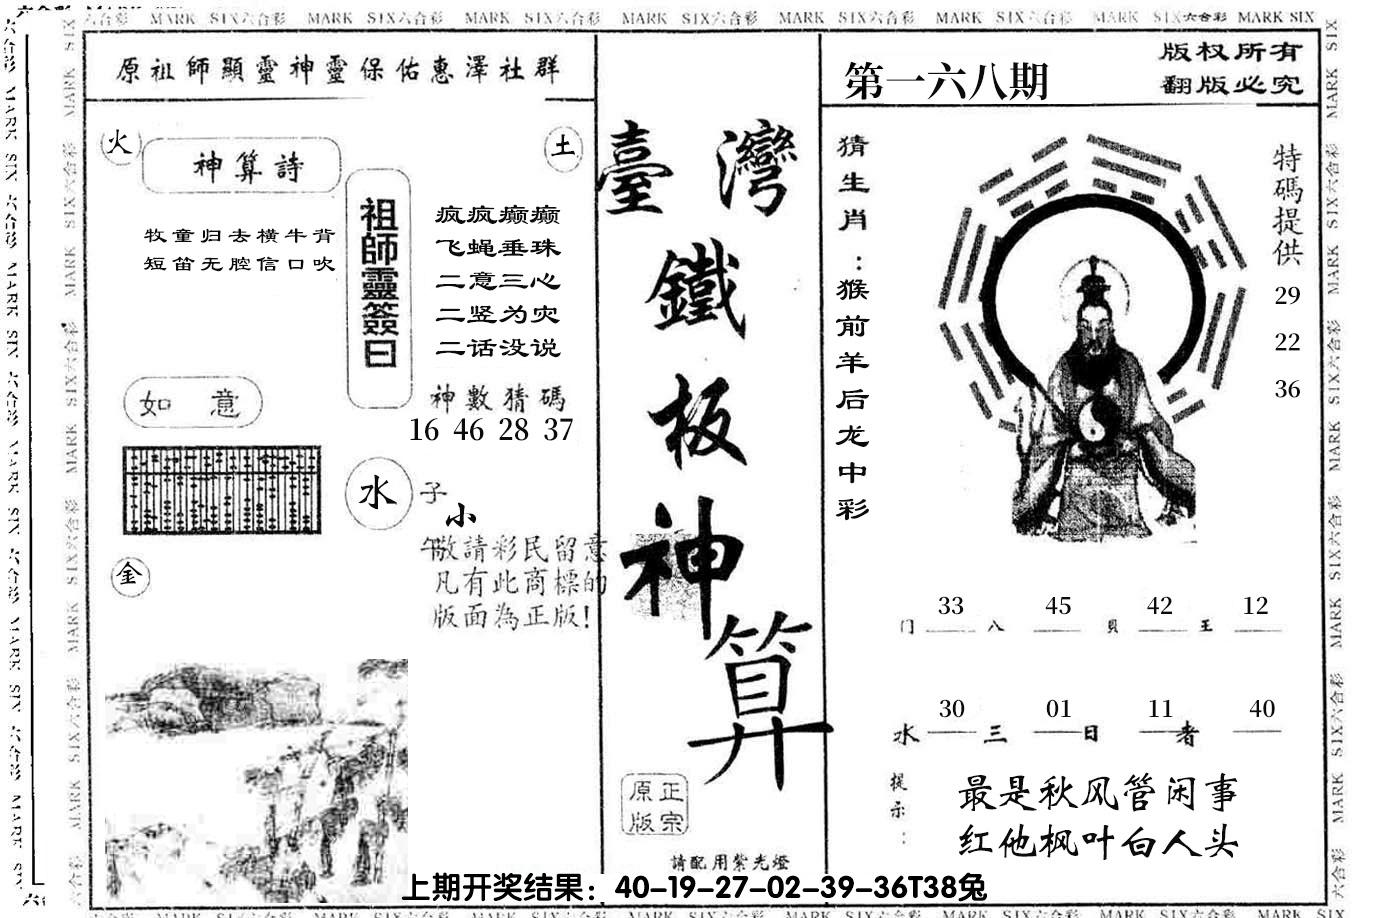 六合彩 MARK SIX六合彩 MARK SIX六合彩 MARK SIX六合彩 MARK SIX六合彩 MARK SIX六合彩 MARK SIX六合彩 MARK SIX六合彩 MARK SIX
原祖師顯靈神靈保佑惠澤社群
火
土
神算詩
牧童归去横牛背
短笛无腔信口吹
祖師靈簽曰
疯疯癫癫
飞蝇垂珠
二意三心
二竖为灾
二话没说
神數猜碼
16 46 28 37
如 意
水
子
小
午
敬請彩民留意
凡有此商標的
版面為正版!
金
臺灣
鐵板神算
正宗
原版
請配用紫光燈
第一六八期
版权所有
翻版必究
猜生肖:猴前羊后龙中彩
特碼提供
29
22
36
33 45 42 12
门 八 貝 王
30 01 11 40
水 三 日 者
提示:
最是秋风管闲事
红他枫叶白人头
上期开奖结果：40-19-27-02-39-36T38兔